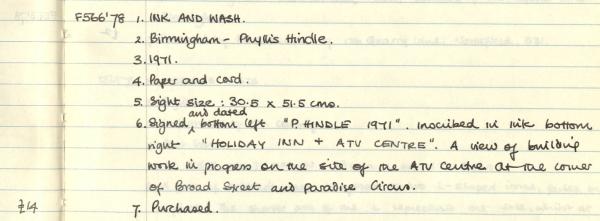 F566'78 1. INK AND WASH.
2. Birmingham - Phyllis Hindle.
3. 1971.
4. Paper and card.
5. Sight size : 30.5 x 51.5 cms.
and dated
6. Signed bottom left "P. HINDLE 1971". Inscribed in ink bottom
right "HOLIDAY INN + ATV CENTRE". A view of building
work in progress on the site of the ATV Centre at the corner
of Broad Street and Paradise Circus.
£14 7. Purchased.